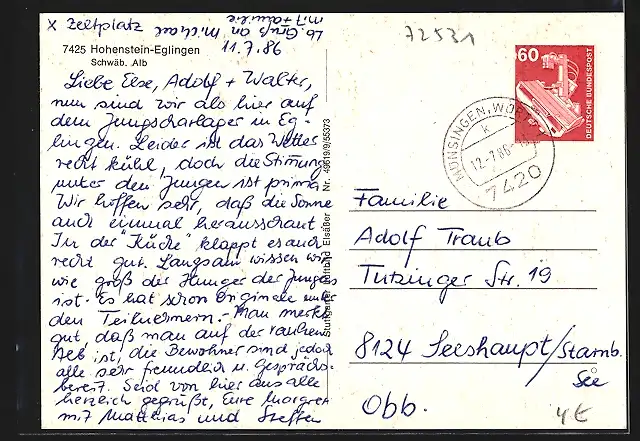 x Zeltplatz
Lb. Gruß an Michael
mit Familie
7425 Hohenstein-Eglingen
Schwäb. Alb
11.7.86
Liebe Else, Adolf + Walter,
nun sind wir also hier auf
dem Jungscharlager in Eg-
lingen. Leider ist das Wetter
recht kühl, doch die Stimmung
unter den Jungen ist prima.
Wir hoffen sehr, daß die Sonne
auch einmal herausschaut.
In der "Küche" klappt es auch
recht gut. Langsam wissen wir
wie groß der Hunger der Jungens
ist. Es hat schon Originale unter
den Teilnehmern. Man merkt
gut, daß man auf der rauhen
Alb ist, die Bewohner sind jedoch
alle sehr freundlich u. gesprächs-
bereit. Seid von hier aus alle
herzlich gegrüßt, Eure Margret
mit Matthias und Steffen
Stuttgarter Luftbild Elsäßer Nr. 49619/9/55373
72531
60
DEUTSCHE BUNDESPOST
MÜNSINGEN, WÜRTT
k
12.-7.86
7420
Familie
Adolf Traub
Tutzinger Str. 19
8124 Seeshaupt/Starnb.
See
Obb.
4€